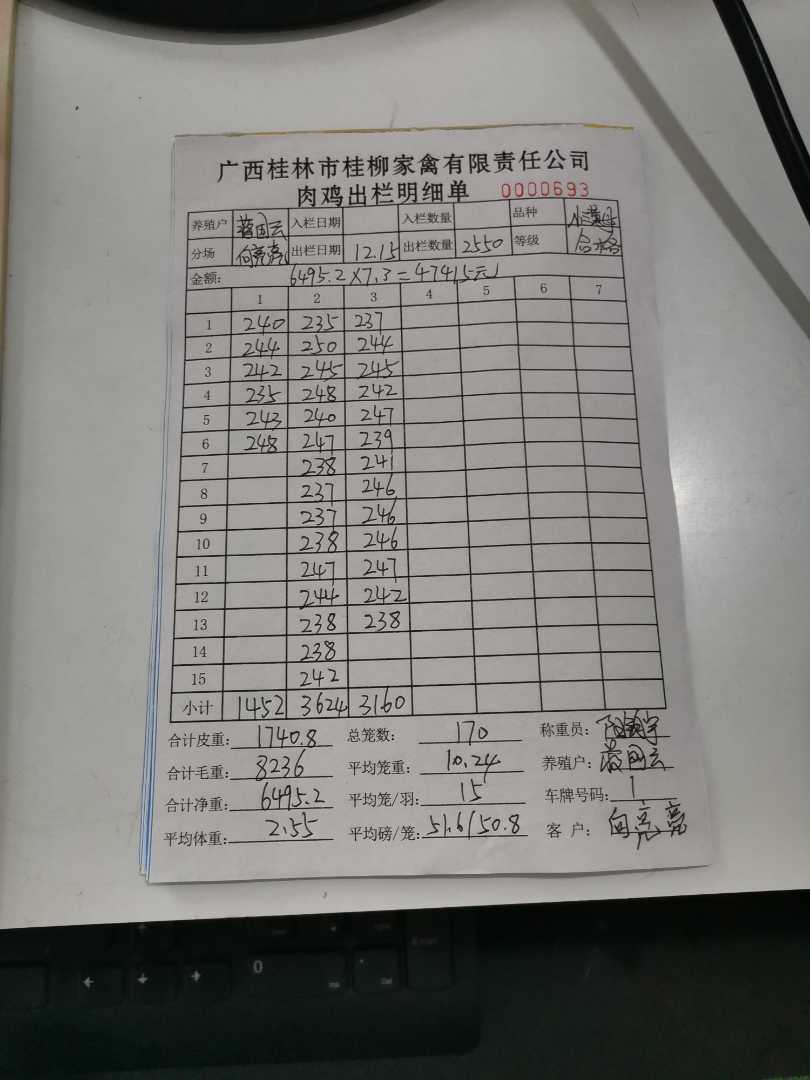 广西桂林市桂柳家禽有限责任公司
肉鸡出栏明细单 0000693
养殖户 蒋国云 入栏日期 入栏数量 品种
分场 向亮亮 出栏日期 12.15 出栏数量 2550 等级 合格
金额: 6495.2×7.3=47415元
1 2 3 4 5 6 7
1 240 235 237
2 244 250 244
3 242 245 245
4 235 248 242
5 243 240 247
6 248 247 239
7 238 241
8 237 246
9 237 246
10 238 246
11 247 247
12 244 242
13 238 238
14 238
15 242
小计 1452 3624 3160
合计皮重: 1740.8 总笼数: 170 称重员:
合计毛重: 8236 平均笼重: 10.24 养殖户: 蒋国云
合计净重: 6495.2 平均笼/羽: 15 车牌号码: 1
平均体重: 2.55 平均磅/笼: 51.6/50.8 客 户: 向亮亮